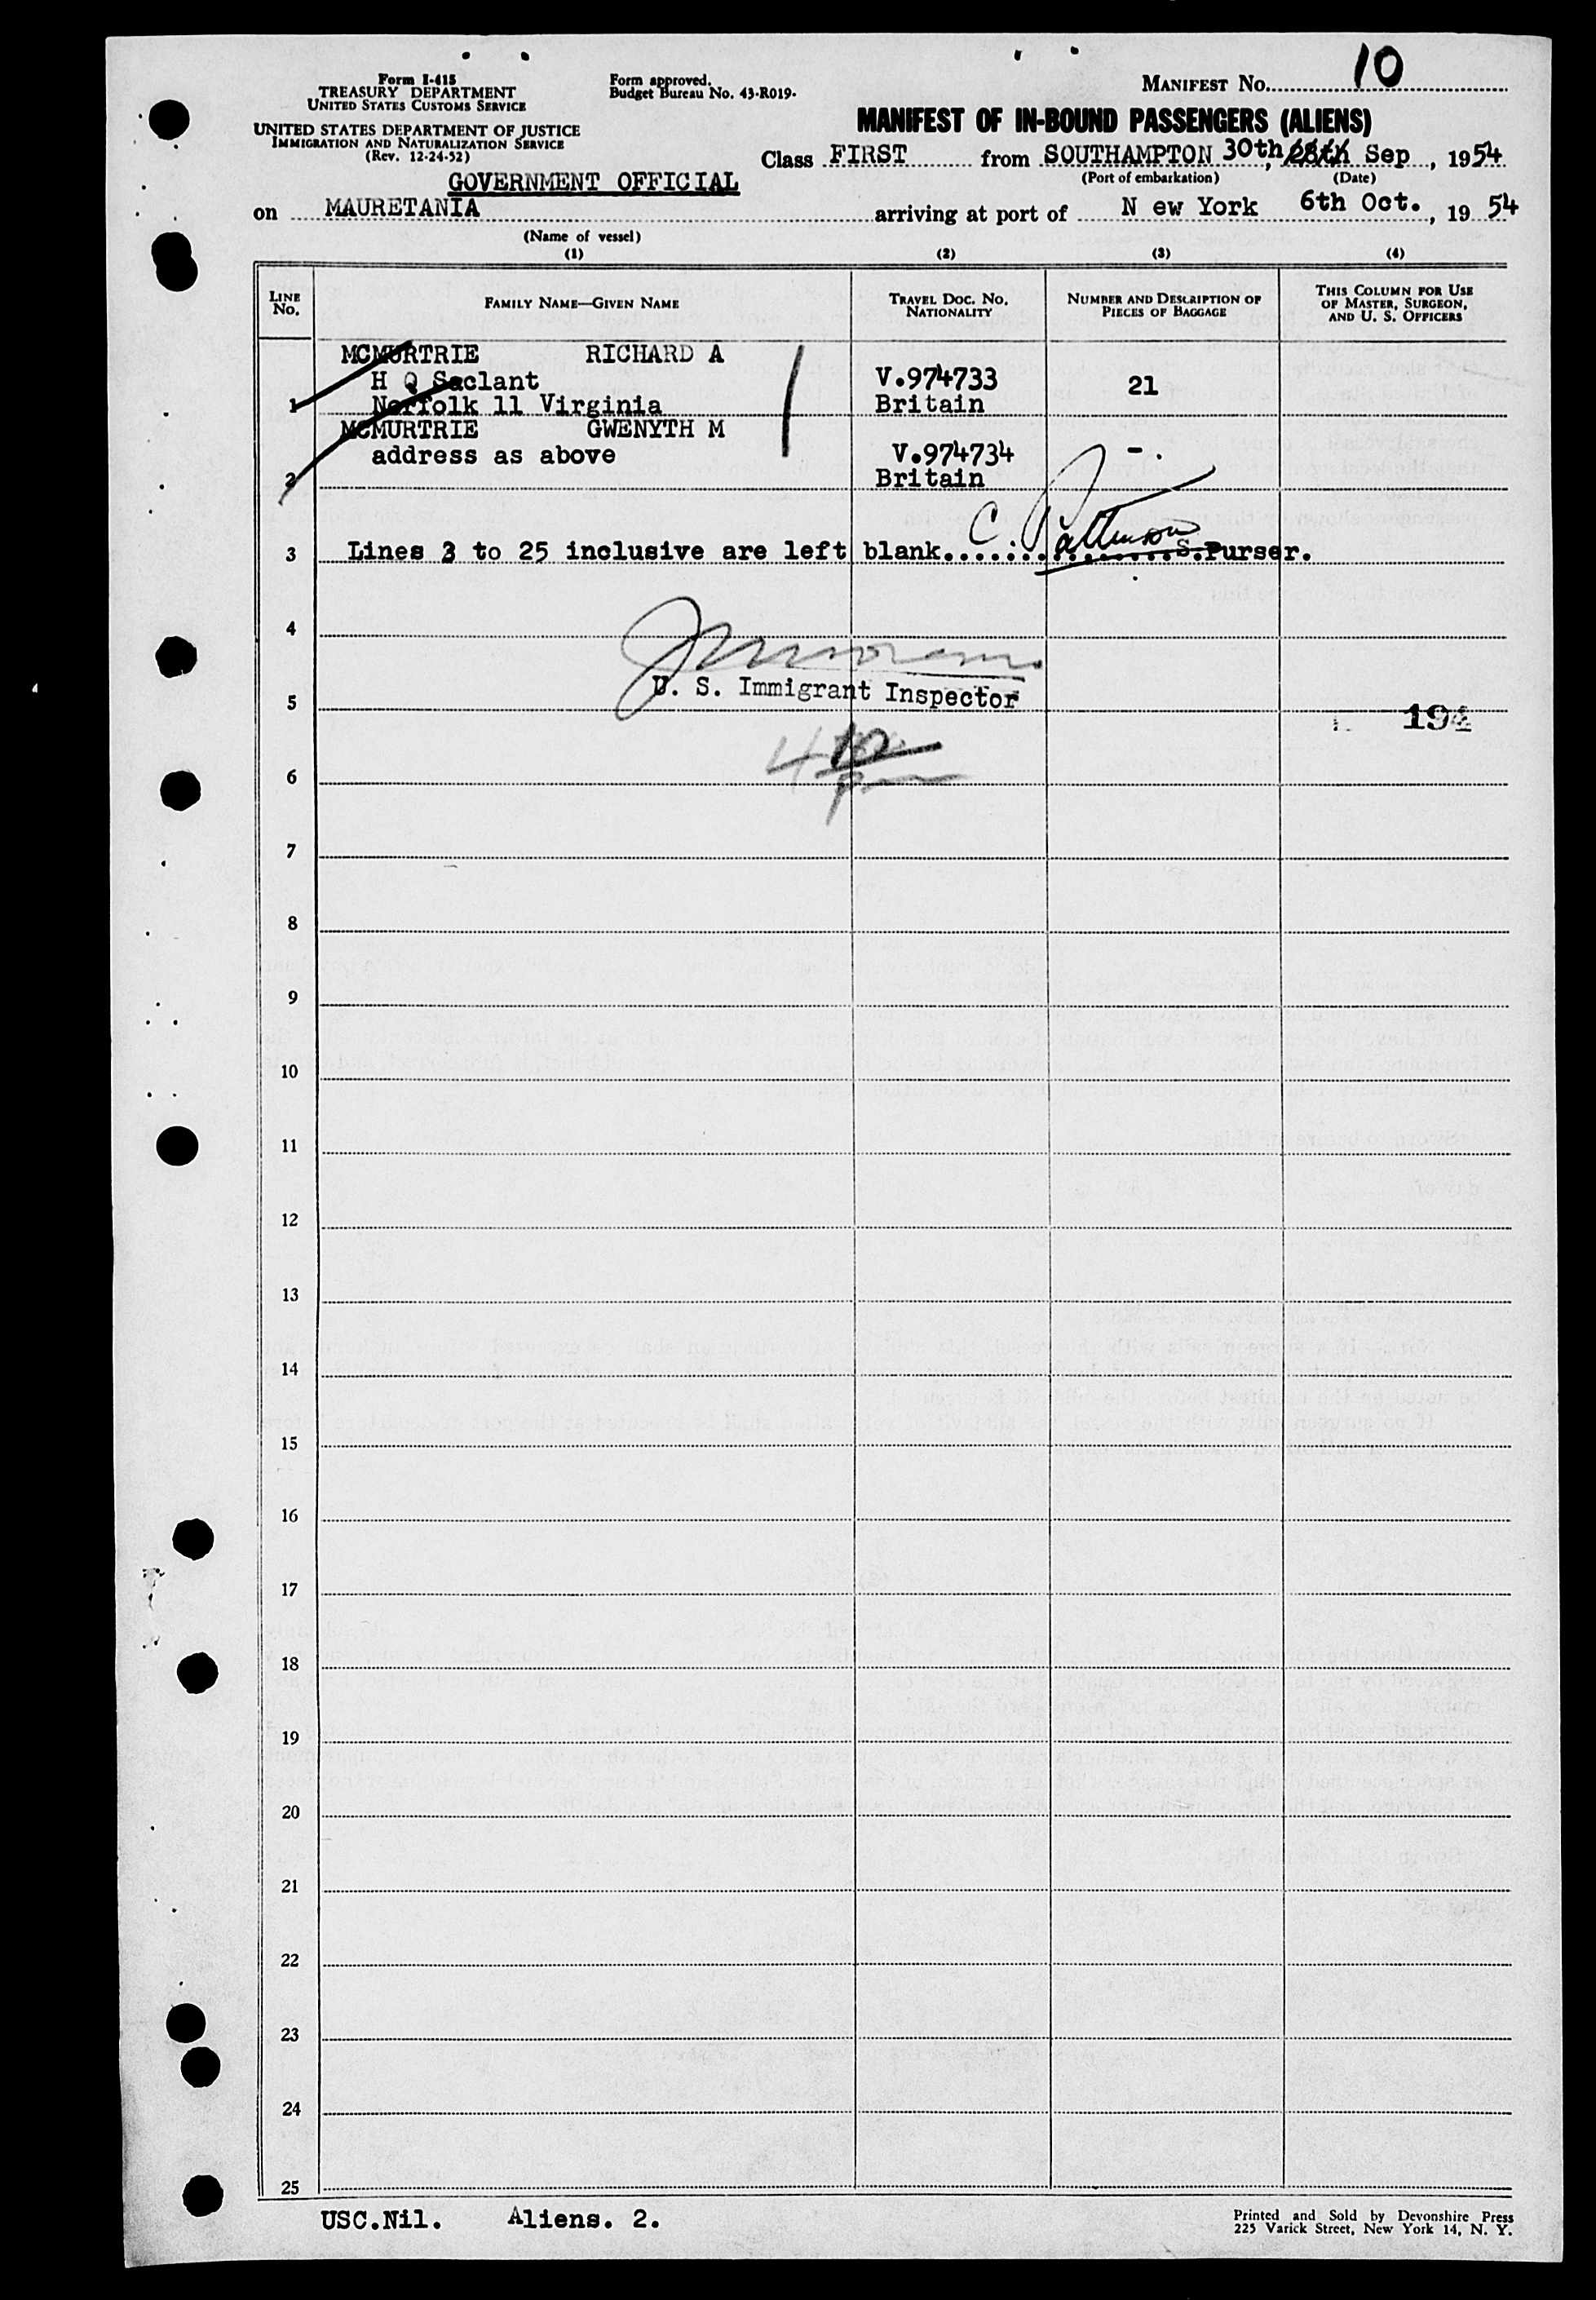 Form I-415
TREASURY DEPARTMENT
UNITED STATES CUSTOMS SERVICE
UNITED STATES DEPARTMENT OF JUSTICE
IMMIGRATION AND NATURALIZATION SERVICE
(Rev. 12-24-52)
Form approved.
Budget Bureau No. 43-R019.
MANIFEST No. 10
MANIFEST OF IN-BOUND PASSENGERS (ALIENS)
Class FIRST from SOUTHAMPTON 30th, 28th Sep, 1954
(Port of embarkation) (Date)
GOVERNMENT OFFICIAL
on MAURETANIA arriving at port of N ew York 6th Oct., 1954
(Name of vessel)
(1) (2) (3) (4)
LINE No. FAMILY NAME—GIVEN NAME TRAVEL DOC. No. NATIONALITY NUMBER AND DESCRIPTION OF PIECES OF BAGGAGE THIS COLUMN FOR USE OF MASTER, SURGEON, AND U. S. OFFICERS
MCMURTRIE RICHARD A
H Q Saclant V.974733 21
1 Norfolk 11 Virginia Britain
MCMURTRIE GWENYTH M
address as above V.974734 -.
2 Britain
3 Lines 3 to 25 inclusive are left blank. C Pattinson S.Purser.
4
U. S. Immigrant Inspector
5 194
6
7
8
9
10
11
12
13
14
15
16
17
18
19
20
21
22
23
24
25
USC.Nil. Aliens. 2.
Printed and Sold by Devonshire Press
225 Varick Street, New York 14, N. Y.